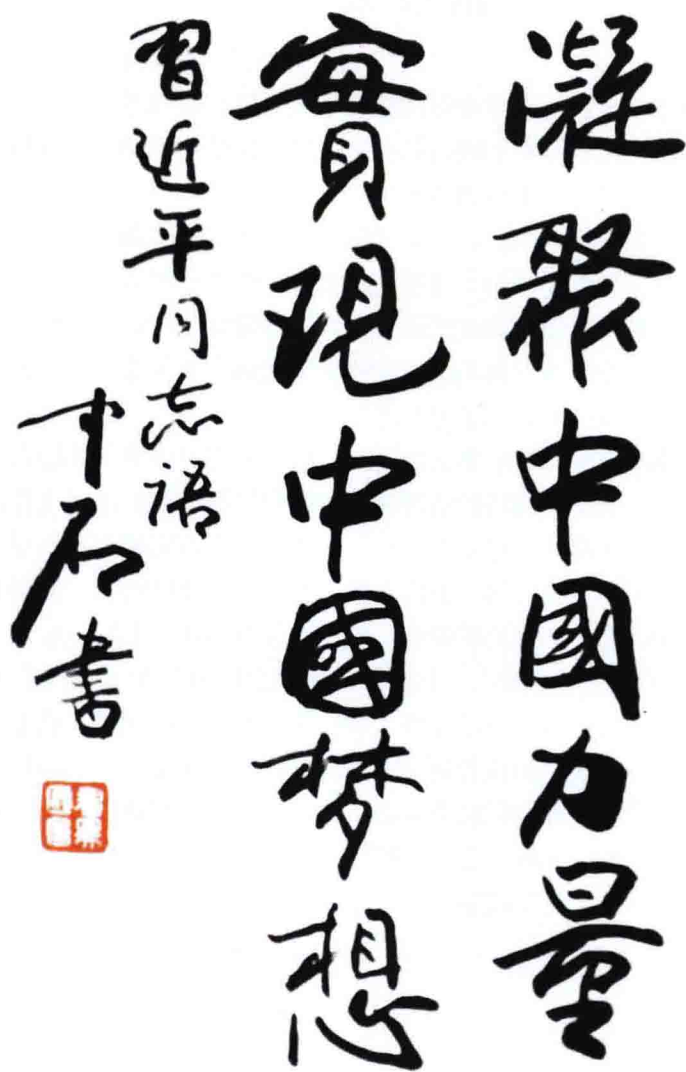 凝聚中國力量
實現中國梦想
習近平同志語
中石書